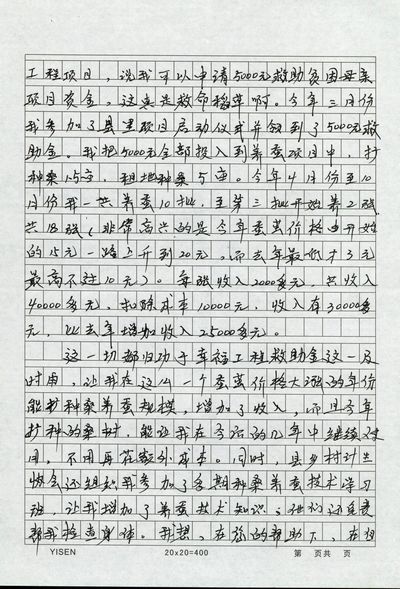 工程项目，说我可以申请5000元救助贫困母亲
项目资金。这真是救命稻草啊。今年三月份
我参加了县里项目启动仪式并领到了5000元救
助金。我把5000元全部投入到养蚕项目中，扩
种桑15亩，租地种桑5亩。今年4月份至10
月份我一共养蚕10批，至第三批开始养2张
共18张（非常高兴的是今年蚕茧价格由开始
的15元一路上升到20元，而去年最低才3元
最高不过10元）。每张收入2000多元，共收入
40000多元，扣除成本10000元，收入有30000多
元，比去年增加收入25000多元。
这一切都归功于幸福工程救助金这一及
时雨，让我在这一个蚕茧价格大涨的年份
能扩种桑养蚕规模，增加了收入，而且今年
扩种的桑树，能让我在今后的12年中继续使
用，不用再花额外成本。同时，县乡村计生
协会还组织我参加了各期种桑养蚕技术学习
班，让我增加了养蚕技术知识；他们还免费
帮我检查身体。我想，在您的帮助下，在但
YISEN 20x20=400 第 页共 页